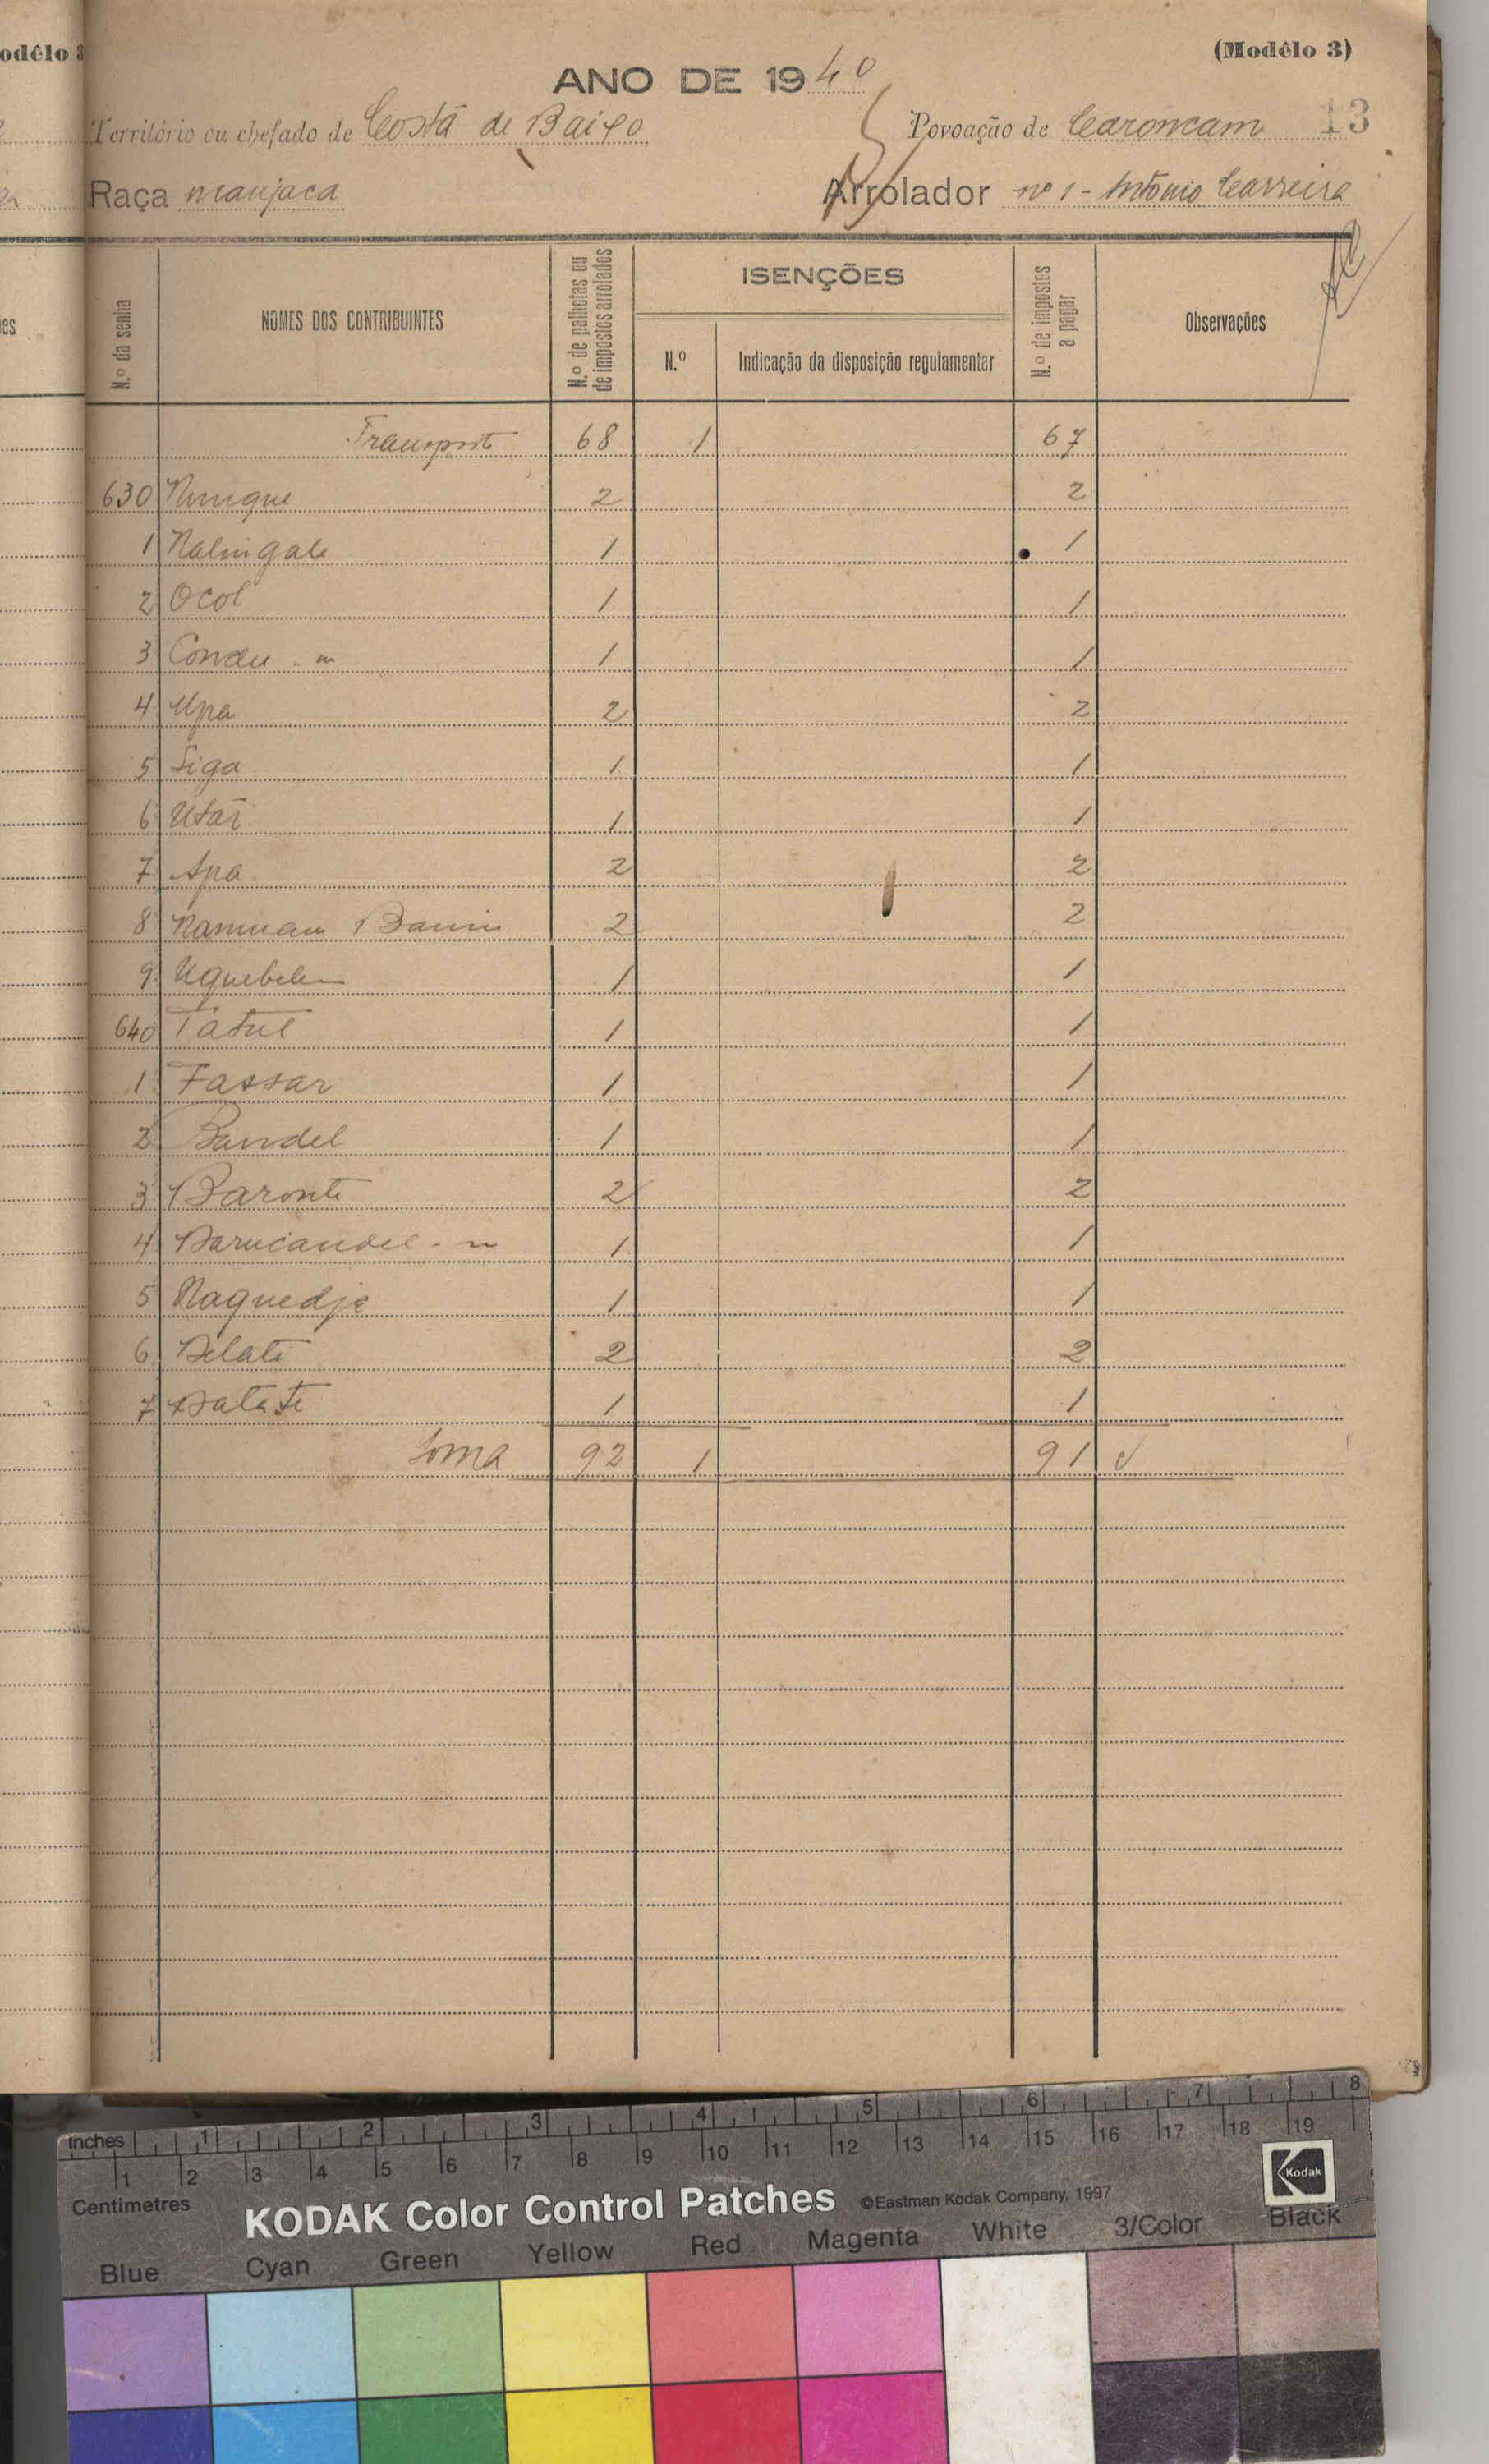 odêlo 3
(Modêlo 3)
ANO DE 1940
13
Território ou chefado de Costa de Baixo Povoação de Caroncam
Raça manjaca Arrolador nº 1 - António Carreira
es
N.º da senha NOMES DOS CONTRIBUINTES N.º de palhotas ou de impostos arrolados ISENÇÕES N.º Indicação da disposição regulamentar N.º de impostos a pagar Observações
Transporte 68 1 67
630 2 2
1 Nalingale 1 1
2 Ocol 1 1
3 Condu - m 1 1
4 Upa 2 2
5 Siga 1 1
6 Utai 1 1
7 Apa 2 2
8 2 2
9 Uquebelem 1 1
640 Tatul 1 1
1 Fassar 1 1
2 Bandel 1 1
3 Baronte 2 2
4 1 1
5 Naquedje 1 1
6 Delate 2 2
7 Datate 1 1
Soma 92 1 91
inches 1 2 3 4 5 6 7 8
1 2 3 4 5 6 7 8 9 10 11 12 13 14 15 16 17 18 19
Centimetres
KODAK Color Control Patches ©Eastman Kodak Company, 1997 Kodak
Blue Cyan Green Yellow Red Magenta White 3/Color Black